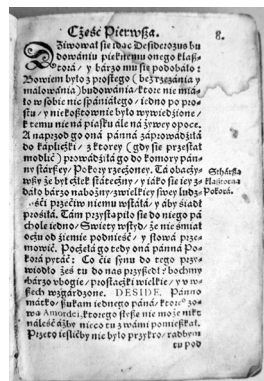 Część Pierwsza. 8.
Dziwował sie idąc Desiderozus bu
dowániu pięknemu onego klasz
torá / y bárzo mu sie podobáło:
Bowiem było z prostego (bez rzezánia y
málowánia) budowánia / ktore nie miá-
ło w sobie nic spániáłego / iedno po pro-
stu / y niekosztownie było wywiedzione /
k temu nie ná piasku ále ná żywey opoce.
A naprzod go oná pánná záprowádziłá
do kápliczki / z ktorey (gdy sie przestał
modlić) prowádziłá go do komory pán-
ny stárszey / Pokory rzeczoney. Tá obaczy-
wszy że był człek státeczny / y iáko sie iey z-
dáło bárzo nabożny / zwielkiey swey ludz-
ości przećiw niemu wstáłá / y áby śiadł
prośiłá. Tám przystąpił sie do niego pá
chole iedno / Swięty wstyd / że nie śmiał
oczu od źiemie podnieść / y słowá przem-
mowić. Poczęłá go tedy oná pánná Po-
korá pytáć: Co ćię synu do tego przy-
wiodło żeś tu do nas przyszedł? bochmy
bárzo vbogie / prostaczki wielkie / y v w-
szech wzgárdzone. DESIDE. Pánno
mátko / szukam iednego páná / ktore° zo-
wą Amordei, ktorego słyszę nie może nikt
náleść áżby nieco tu z wámi pomieszkał.
Przeto iesliby nie było przykro / radbym
tu pod
Schárská
klasztorna
Pokorá.